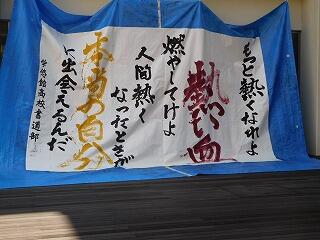 もっと熱くなれよ
熱い血
燃やしてけよ
人間熱く
なったときが
本当の自分
に出会えるんだ
高校書道部